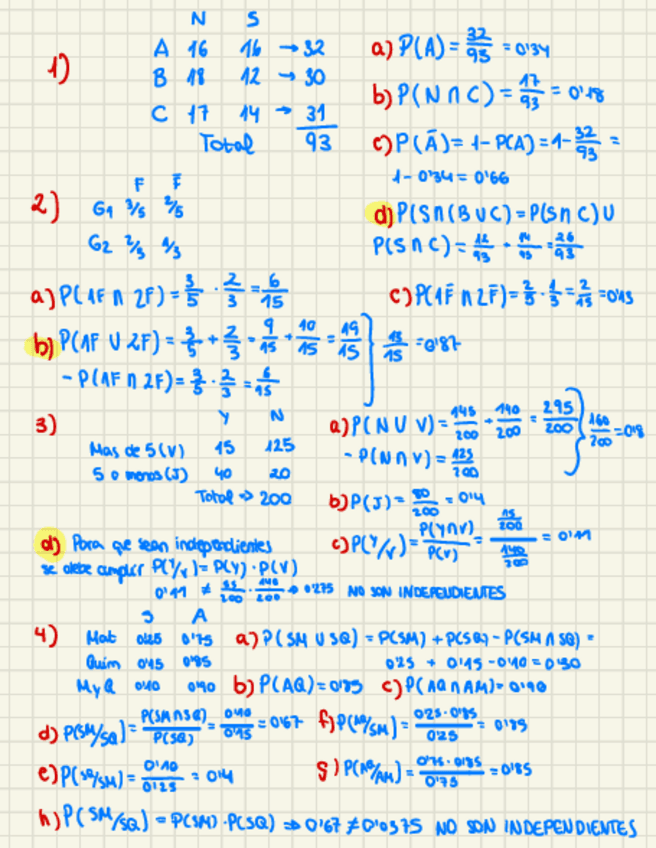 1)
N S
A 16 16 → 32
B 18 12 → 30
C 17 14 → 31
Total 93
a) P(A) = 32/93 = 0'34
b) P(N ∩ C) = 17/93 = 0'18
c) P(Ā) = 1 - P(A) = 1 - 32/93 =
1 - 0'34 = 0'66
d) P(S ∩ (B ∪ C) = P(S ∩ C) ∪
P(S ∩ C) = 12/93 + 14/93 = 26/93
2)
F F̄
G1 3/5 2/5
G2 2/3 1/3
a) P(1F ∩ 2F) = 3/5 · 2/3 = 6/15
c) P(1F̄ ∩ 2F̄) = 2/5 · 1/3 = 2/15 = 0'13
b) P(1F ∪ 2F) = 3/5 + 2/3 = 9/15 + 10/15 = 19/15
- P(1F ∩ 2F) = 3/5 · 2/3 = 6/15
13/15 = 0'87
3)
Y N
Mas de 5 (V) 15 125
5 o menos (J) 40 20
Total => 200
a) P(N ∪ V) = 145/200 + 140/200 = 295/200
- P(N ∩ V) = 125/200
160/200 = 0'8
b) P(J) = 80/200 = 0'4
c) P(Y/V) = P(Y∩V)/P(V) = 15/200 / 140/200 = 0'11
d) Para que sean independientes
se debe cumplir P(Y/V) = P(Y) · P(V)
0'11 ≠ 55/200 · 140/200 → 0'275 NO SON INDEPENDIENTES
4)
S A
Mat 0'25 0'75
Quim 0'15 0'85
M y Q 0'10 0'90
a) P(SM ∪ SQ) = P(SM) + P(SQ) - P(SM ∩ SQ) =
0'25 + 0'15 - 0'10 = 0'30
b) P(AQ) = 0'85 c) P(AQ ∩ AM) = 0'90
d) P(SM/SQ) = P(SM ∩ SQ)/P(SQ) = 0'10/0'15 = 0'67
f) P(AQ/SM) = 0'25 · 0'85/0'25 = 0'85
e) P(SQ/SM) = 0'10/0'25 = 0'4
g) P(AQ/AM) = 0'75 · 0'85/0'75 = 0'85
h) P(SM/SQ) = P(SM) · P(SQ) => 0'67 ≠ 0'0375 NO SON INDEPENDIENTES